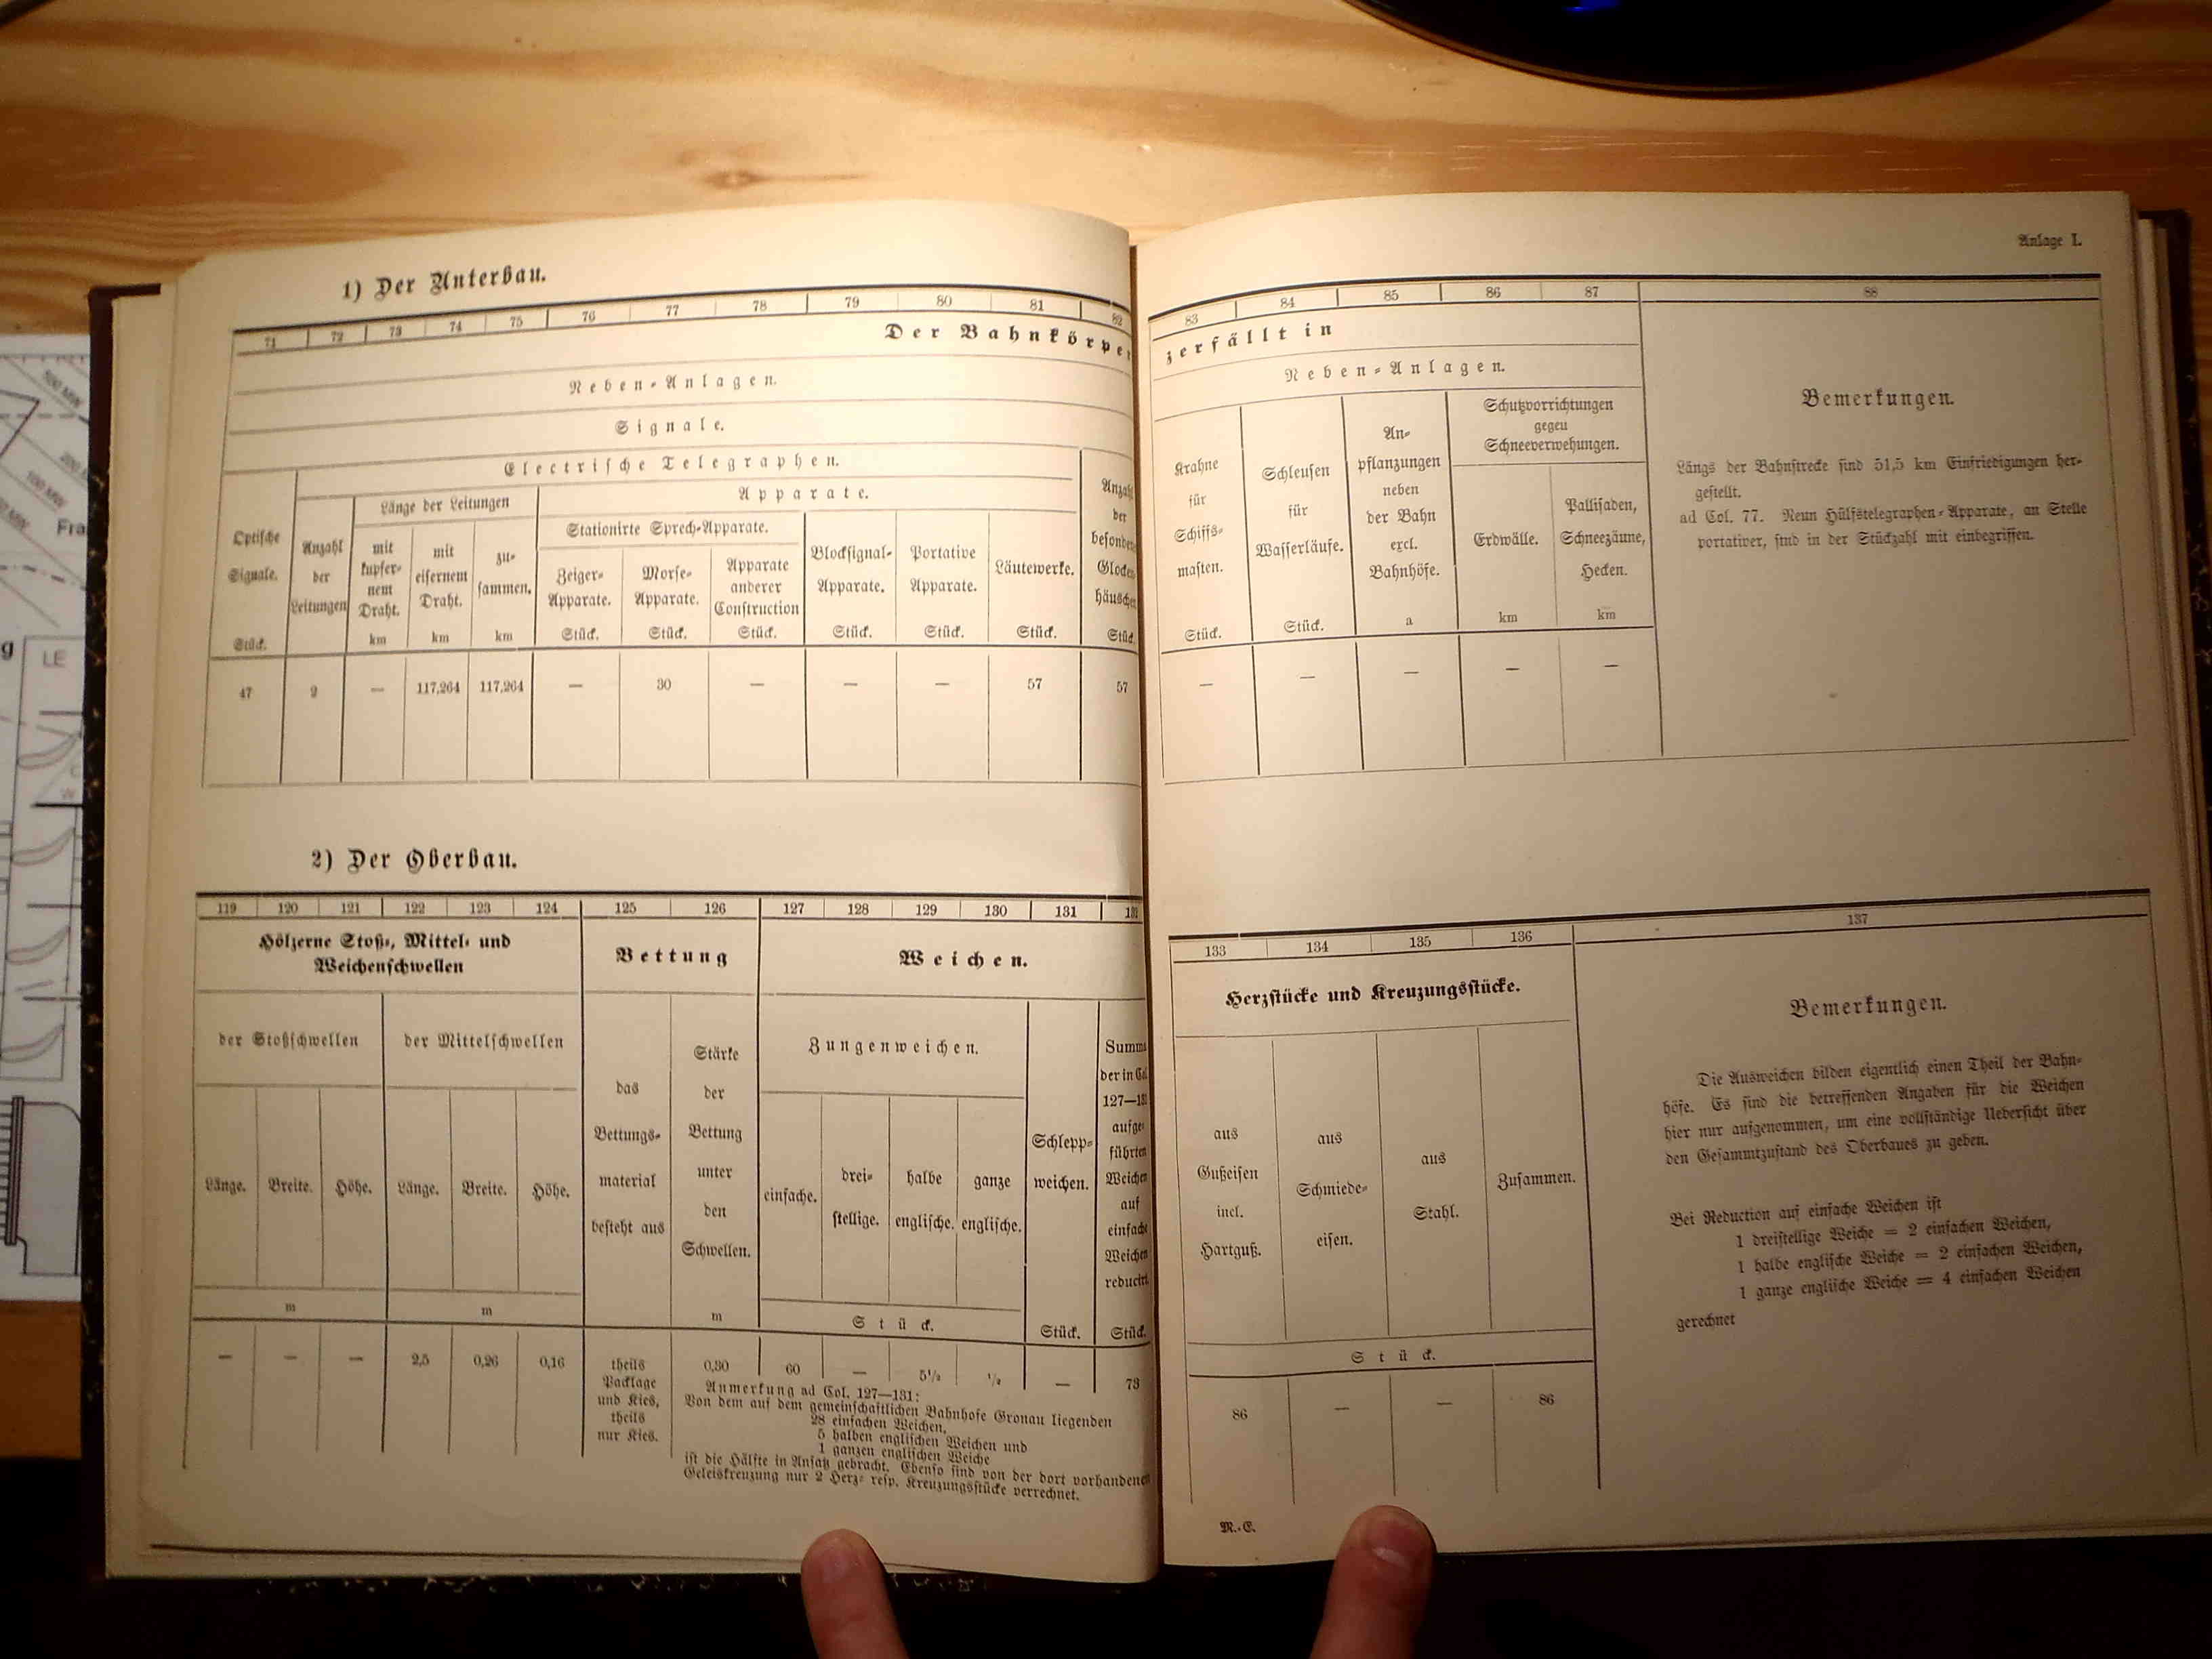 Anlage I.
1) Der Unterbau.
71 72 73 74 75 76 77 78 79 80 81 82
Der Bahnkörper
Neben-Anlagen.
Signale.
Electrische Telegraphen.
Optische
Signale.
Stück.
Anzahl
der
Leitungen
Länge der Leitungen
mit
kupfer-
nem
Draht.
km
mit
eisernem
Draht.
km
zu-
sammen.
km
Apparate.
Stationirte Sprech-Apparate.
Zeiger-
Apparate.
Stück.
Morse-
Apparate.
Stück.
Apparate
anderer
Construction
Stück.
Blocksignal-
Apparate.
Stück.
Portative
Apparate.
Stück.
Läutewerke.
Stück.
Anzahl
der
besonderen
Glocken-
häuschen
Stück.
47 2 — 117,264 117,264 — 30 — — — 57 57
83 84 85 86 87 88
zerfällt in
Neben-Anlagen.
Krahne
für
Schiffs-
masten.
Stück.
Schleusen
für
Wasserläufe.
Stück.
An-
pflanzungen
neben
der Bahn
excl.
Bahnhöfe.
a
Schutzvorrichtungen
gegen
Schneeverwehungen.
Erdwälle.
km
Pallisaden,
Schneezäune,
Hecken.
km
— — — — —
Bemerkungen.
Längs der Bahnstrecke sind 51,5 km Einfriedigungen her-
gestellt.
ad Col. 77. Neun Hülfstelegraphen-Apparate, an Stelle
portativer, sind in der Stückzahl mit einbegriffen.
2) Der Oberbau.
119 120 121 122 123 124 125 126 127 128 129 130 131 132
Hölzerne Stoß-, Mittel- und
Weichenschwellen
der Stoßschwellen
Länge. Breite. Höhe.
m
der Mittelschwellen
Länge. Breite. Höhe.
m
Bettung
das
Bettungs-
material
besteht aus
Stärke
der
Bettung
unter
den
Schwellen.
m
Weichen.
Zungenweichen.
einfache.
drei-
stellige.
halbe
englische.
ganze
englische.
Stück.
Schlepp-
weichen.
Stück.
Summa
der in Col.
127—131
aufge-
führten
Weichen
auf
einfache
Weichen
reducirt.
Stück.
— — — 2,5 0,26 0,16
theils
Packlage
und Kies,
theils
nur Kies.
0,30 60 — 5 1/2 1/2 — 73
Anmerkung ad Col. 127—131:
Von dem auf dem gemeinschaftlichen Bahnhofe Gronau liegenden
28 einfachen Weichen,
5 halben englischen Weichen und
1 ganzen englischen Weiche
ist die Hälfte in Ansatz gebracht. Ebenso sind von der dort vorhandenen
Geleiskreuzung nur 2 Herz- resp. Kreuzungsstücke verrechnet.
133 134 135 136 137
Herzstücke und Kreuzungsstücke.
aus
Gußeisen
incl.
Hartguß.
aus
Schmiede-
eisen.
aus
Stahl.
Zusammen.
Stück.
86 — — 86
Bemerkungen.
Die Ausweichen bilden eigentlich einen Theil der Bahn-
höfe. Es sind die betreffenden Angaben für die Weichen
hier nur aufgenommen, um eine vollständige Uebersicht über
den Gesammtzustand des Oberbaues zu geben.
Bei Reduction auf einfache Weichen ist
1 dreistellige Weiche = 2 einfachen Weichen,
1 halbe englische Weiche = 2 einfachen Weichen,
1 ganze englische Weiche = 4 einfachen Weichen
gerechnet
M.-E.
500 MW
100 MW
Fra
g
LE